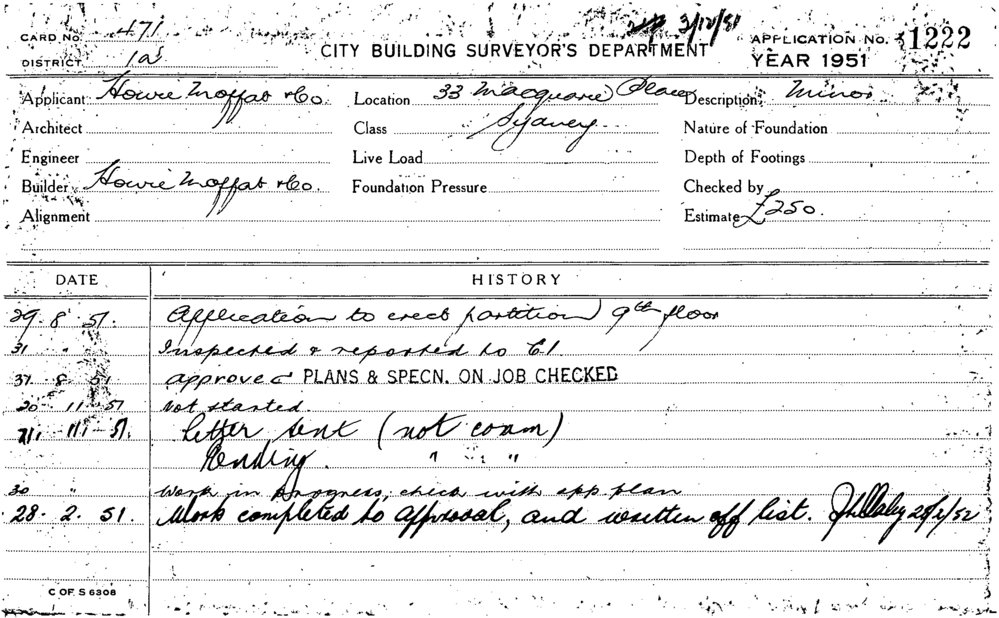 3/12/51
CARD No. 471
CITY BUILDING SURVEYOR'S DEPARTMENT
APPLICATION No. 1222
DISTRICT 1a
YEAR 1951
Applicant Howie Moffat & Co. Location 33 Macquarie Place Description Minor
Architect Class Sydney Nature of Foundation
Engineer Live Load Depth of Footings
Builder Howie Moffat & Co. Foundation Pressure Checked by
Alignment Estimate £250.
DATE HISTORY
29. 8. 51. Application to erect partition 9th floor
31 " Inspected & reported to C.I.
31. 8. 51 approved PLANS & SPECN. ON JOB CHECKED
20 11 - 51 Not started.
11 - 51. Letter sent (not comm)
Pending. " "
30 " Work in progress, check with app plan
28. 2. 51. Work completed to approval, and written off list. 28/2/52
C OF S 6308